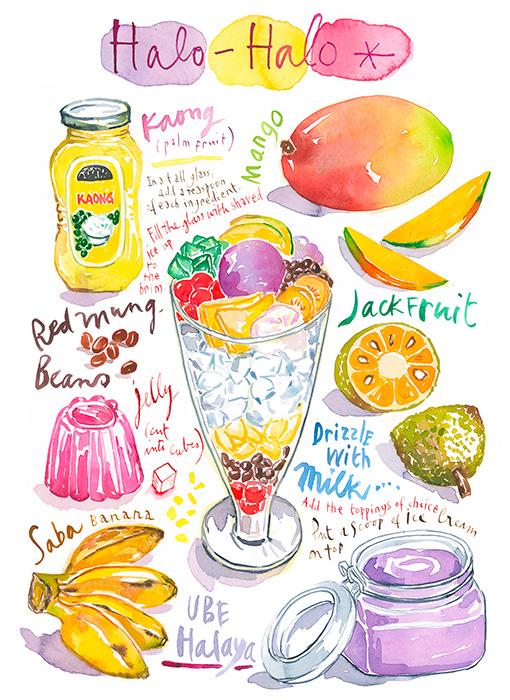 Halo-Halo *
Kaong
(palm fruit)
Mango
KAONG
In a tall glass,
add a teaspoon
of each ingredient.
Fill the glass with shaved
ice up
to
the
brim.
Red mung
Beans
Jackfruit
jelly
(cut
into cubes)
Drizzle
with
milk....
Add the toppings of choice
Put a scoop of Ice Cream
on top
Saba Banana
UBE
Halaya